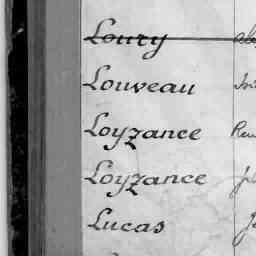 Loury
Louveau
Loyzance
Loyzance
Lucas